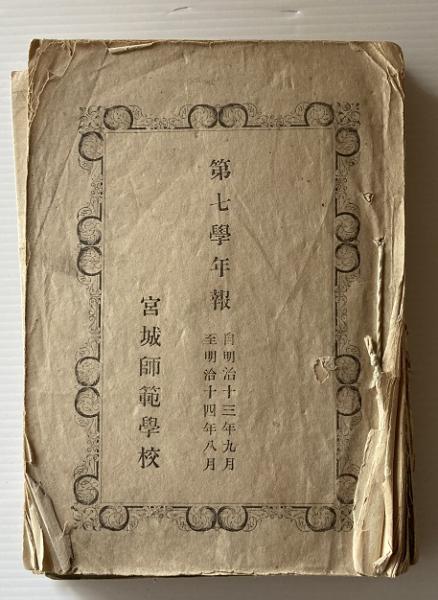 第七學年報
自明治十三年九月
至明治十四年八月
宮城師範學校